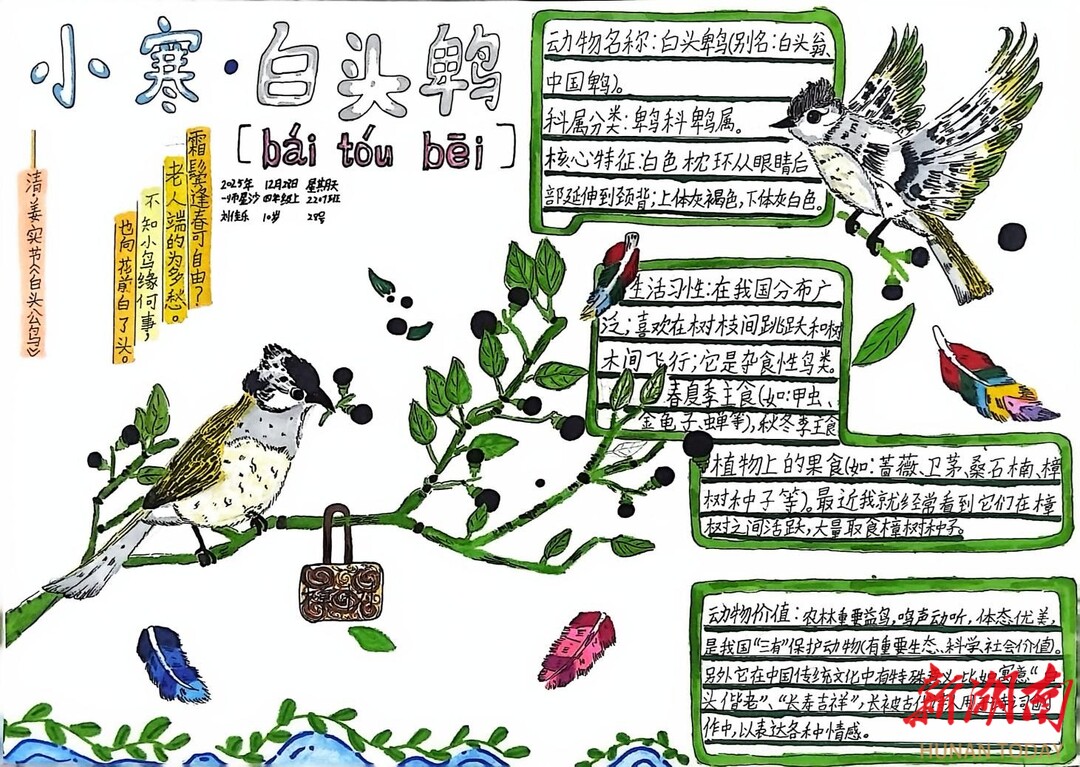 小寒·白头鹎
[bái tóu bēi]
2025年 12月28日 星期天
一师星沙 四年级上 2207班
10岁 28号
霜鬓逢春可自由？
老人端的为多愁。
不知小鸟缘何事，
也向花前白了头。
清·姜实节《白头公鸟》
动物名称：白头鹎(别名：白头翁、
中国鹎)。
科属分类：鹎科鹎属。
核心特征：白色枕环从眼睛后
部延伸到颈背；上体灰褐色，下体灰白色。
生活习性：在我国分布广
泛；喜欢在树枝间跳跃和树
木间飞行；它是杂食性鸟类。
春夏季主食(如：甲虫、
金龟子、蝉等)，秋冬季主食
植物上的果食(如：蔷薇、卫茅、桑石楠、樟
树种子等)。最近我就经常看到它们在樟
树之间活跃，大量取食樟树种子。
动物价值：农林重要益鸟，鸣声动听，体态优美，
是我国“三有”保护动物(有重要生态、科学、社会价值)。
另外它在中国传统文化中有特殊意义，比如寓意“
头偕老”、“长寿吉祥”，长被古代
作中，以表达各种情感。
新湖南
HUNAN TODAY